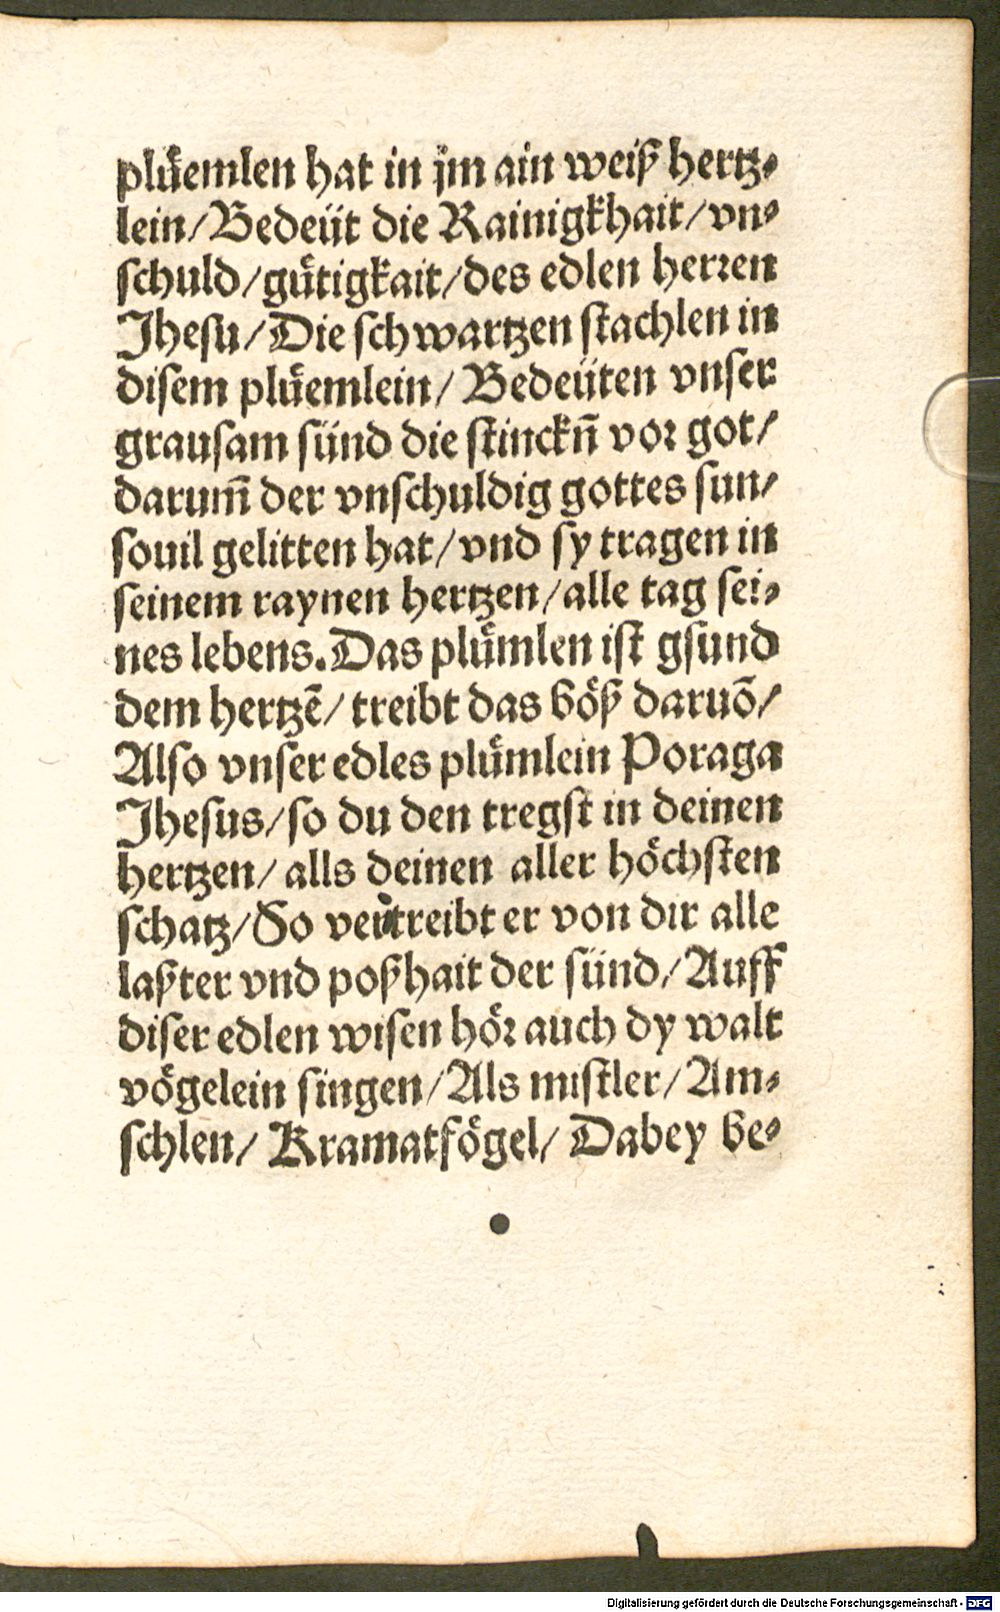 plůemlen hat in jm ain weiß hertz⸗
lein/Bedeüt die Rainigkhait/vn⸗
schuld/gůtigkait/des edlen herren
Jhesu/Die schwartzen stachlen in
disem plůemlein/Bedeüten vnser
grausam sünd die stinckn̄ vor got/
darum̄ der vnschuldig gottes sun/
souil gelitten hat/vnd sy tragen in
seinem raynen hertzen/alle tag sei⸗
nes lebens.Das plůmlen ist gsund
dem hertzē/treibt das böß daruō/
Also vnser edles plůmlein Poraga
Jhesus/so du den tregst in deinen
hertzen/alls deinen aller höchsten
schatz/So vertreibt er von dir alle
laßter vnd poßhait der sünd/Auff
diser edlen wisen hör auch dy walt
vögelein singen/Als mistler/Am⸗
schlen/Kramatfögel/Dabey be⸗
Digitalisierung gefördert durch die Deutsche Forschungsgemeinschaft - DFG